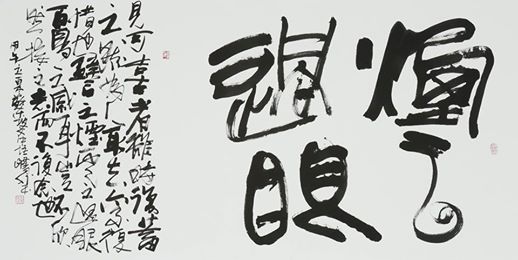 煙云
過眼
見可喜者雖時復蓄
之然為人取去亦不復
惜也譬之煙云之過眼
百鳥之感耳豈不欣
然接之去而不復念也